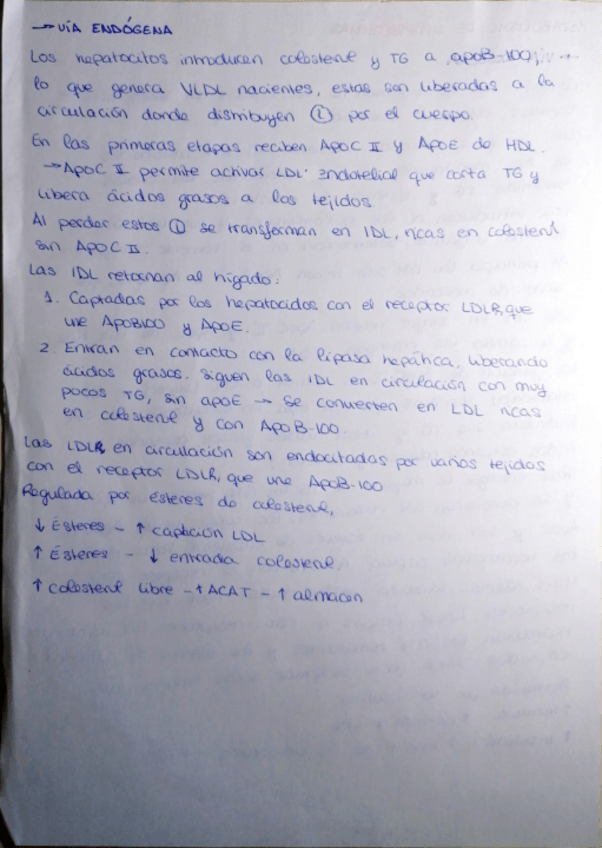 → VÍA ENDÓGENA
Los hepatocitos introducen colesterol y TG a apoB-100,
lo que genera VLDL nacientes, estas son liberadas a la
circulación donde distribuyen Ⓛ por el cuerpo.
En las primeras etapas reciben Apo C II y Apo E de HDL.
→ Apo C II permite activar LDL Endotelial que corta TG y
libera ácidos grasos a los tejidos
Al perder estos Ⓛ se transforman en IDL, ricas en colesterol
sin Apo C II.
Las IDL retornan al hígado:
1. Captadas por los hepatocidos con el receptor LDLR, que
une ApoB100 y ApoE.
2. Entran en contacto con la lipasa hepática, liberando
ácidos grasos. Siguen las IDL en circulación con muy
pocos TG, sin apoE → Se convierten en LDL ricas
en colesterol y con Apo B-100.
Las LDL en circulación son endocitadas por varios tejidos
con el receptor LDLR, que une ApoB-100
Regulada por ésteres de colesterol,
↓ Ésteres - ↑ captación LDL
↑ Ésteres - ↓ entrada colesterol
↑ colesterol libre - ↑ ACAT - ↑ almacen